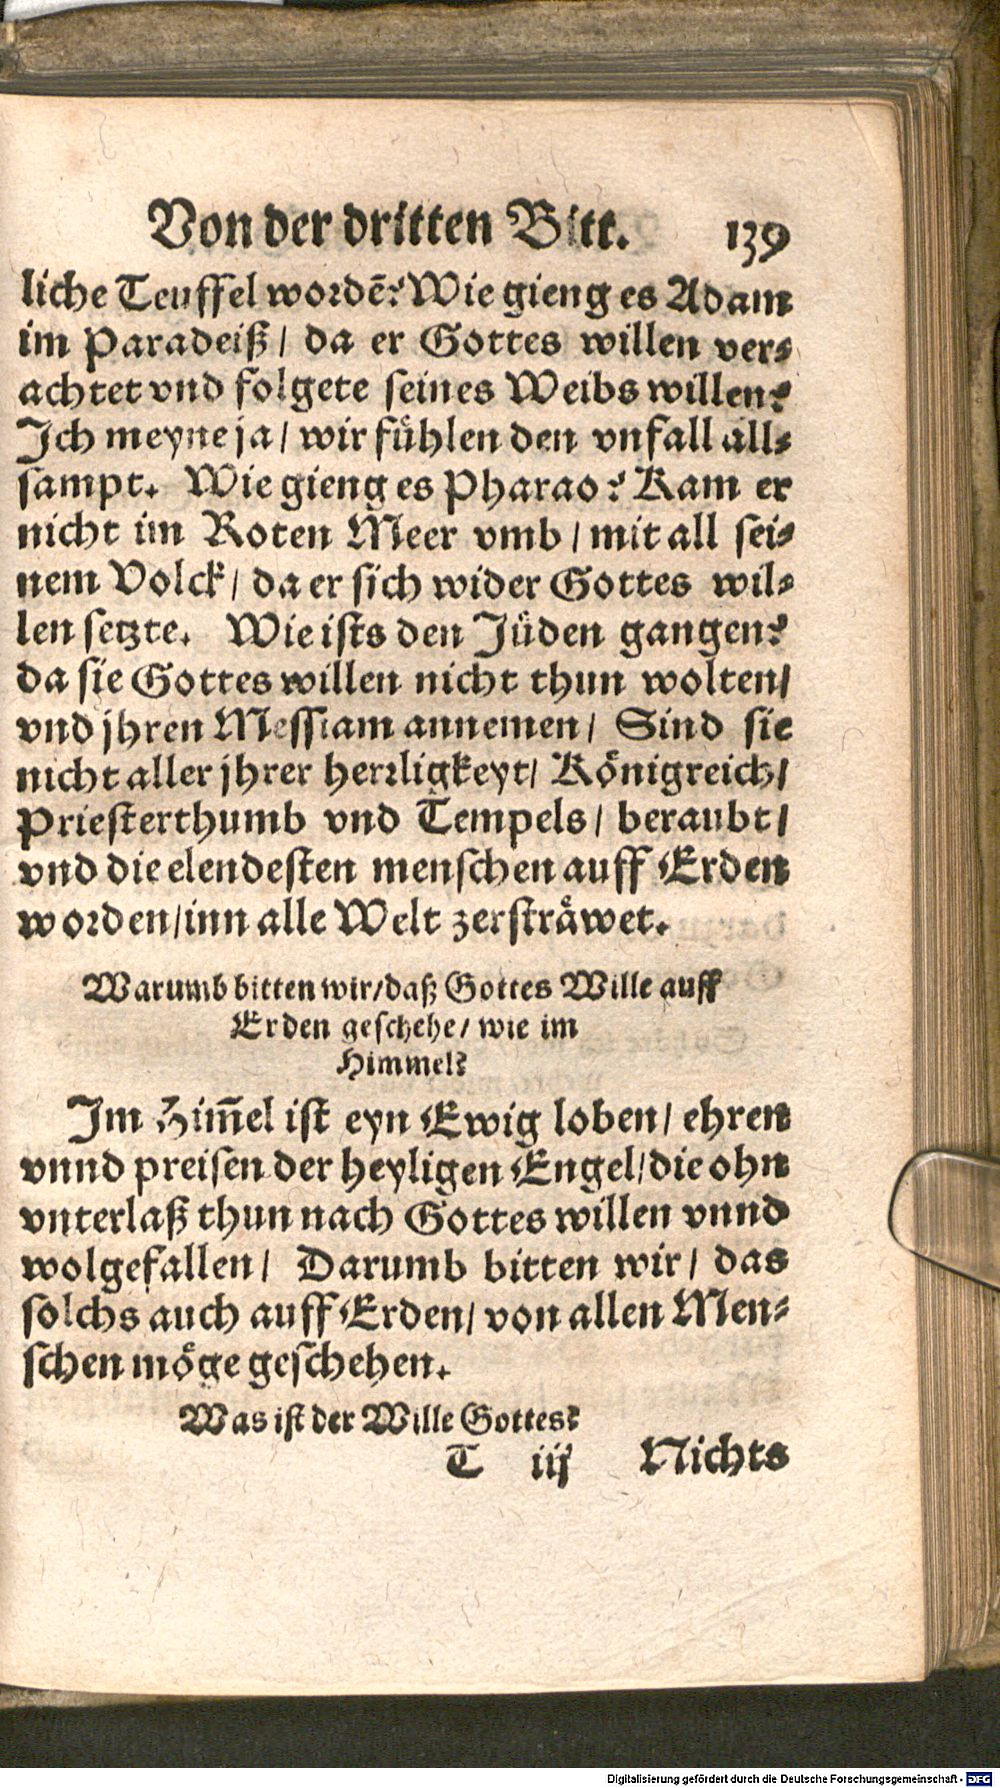 Von der dritten Bitt. 139
liche Teuffel wordē? Wie gieng es Adam
im Paradeiß / da er Gottes willen ver-
achtet vnd folgete seines Weibs willen?
Ich meyne ja / wir fühlen den vnfall all-
sampt. Wie gieng es Pharao? Kam er
nicht im Roten Meer vmb / mit all sei-
nem Volck / da er sich wider Gottes wil-
len setzte. Wie ists den Jüden gangen?
da sie Gottes willen nicht thun wolten /
vnd jhren Messiam annemen / Sind sie
nicht aller jhrer herrligkeyt / Königreich /
Priesterthumb vnd Tempels / beraubt /
vnd die elendesten menschen auff Erden
worden / inn alle Welt zersträwet.
Warumb bitten wir / daß Gottes Wille auff
Erden geschehe / wie im
Himmel?
Im Himēl ist eyn Ewig loben / ehren
vnnd preisen der heyligen Engel / die ohn
vnterlaß thun nach Gottes willen vnnd
wolgefallen / Darumb bitten wir / das
solchs auch auff Erden / von allen Men-
schen möge geschehen.
Was ist der Wille Gottes?
T iij Nichts
Digitalisierung gefördert durch die Deutsche Forschungsgemeinschaft - DFG